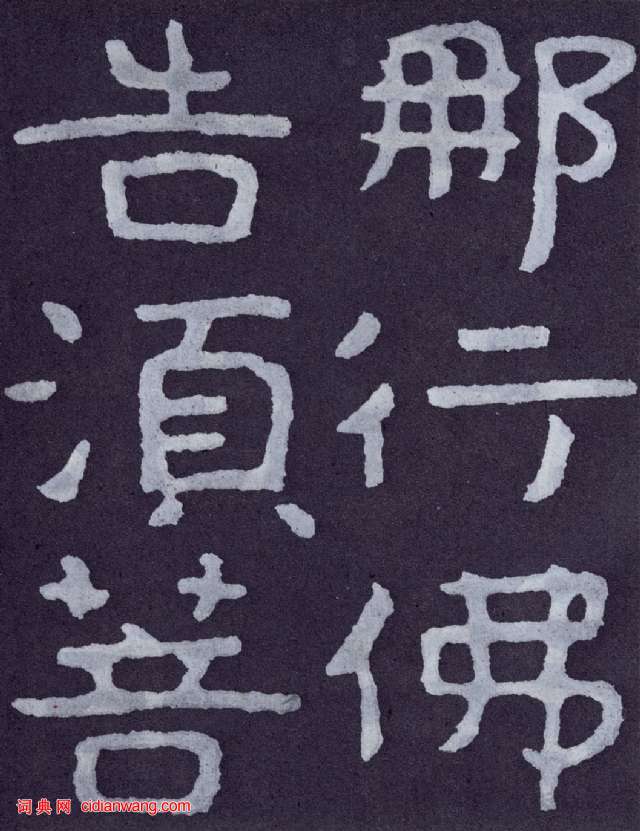 那行佛
告湏菩
词典网 cidianwang.com